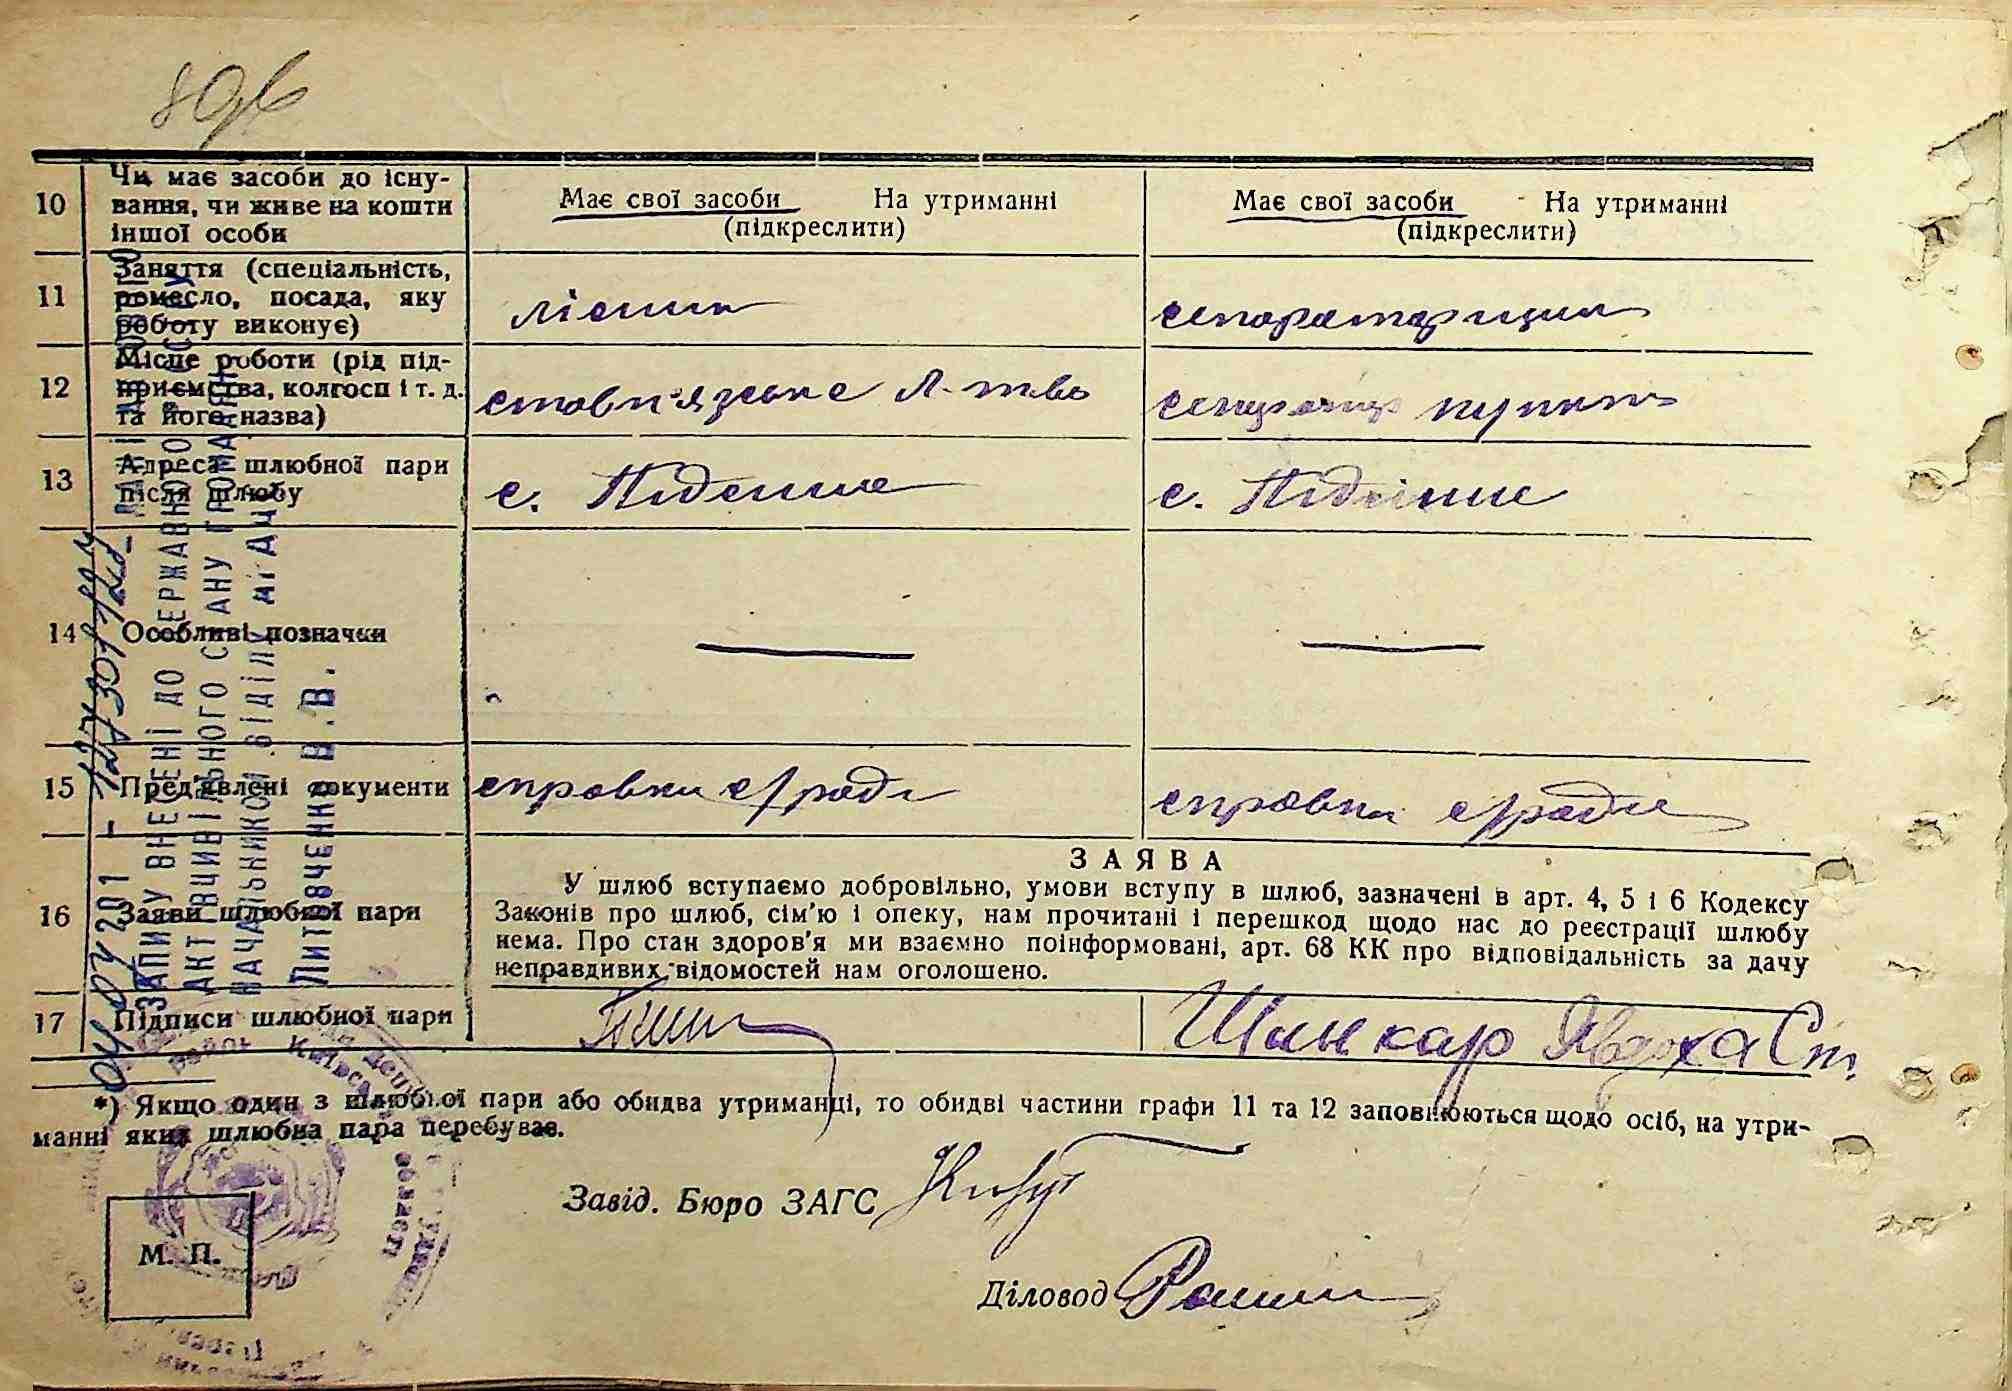 10 Чи має засоби до існу-
вання, чи живе на кошти
іншої особи
Має свої засоби На утриманні
(підкреслити)
Має свої засоби На утриманні
(підкреслити)
11 Заняття (спеціальність,
ромесло, посада, яку
роботу виконує)
лісник
12 Місце роботи (рід під-
приємства, колгосп і т. д.
та його назва)
стовп'язське л-тво
пункт
13 Адреса шлюбної пари
після шлюбу
с.
с.
14 Особливі позначки
15 Пред'явлені документи
справки с/ради
справки с/ради
16 Заяви шлюбної пари
ЗАЯВА
У шлюб вступаємо добровільно, умови вступу в шлюб, зазначені в арт. 4, 5 і 6 Кодексу
Законів про шлюб, сім'ю і опеку, нам прочитані і перешкод щодо нас до реєстрації шлюбу
нема. Про стан здоров'я ми взаємно поінформовані, арт. 68 КК про відповідальність за дачу
неправдивих відомостей нам оголошено.
17 Підписи шлюбної пари
Шанкар Явдоха Ст.
*) Якщо один з шлюбної пари або обидва утриманці, то обидві частини графи 11 та 12 заповнюються щодо осіб, на утри-
манні яких шлюбна пара перебуває.
Завід. Бюро ЗАГС
Діловод
М. П.
ЗАПИСУ ВНЕСЕНІ ДО ДЕРЖАВНОГО
АКТІВ ЦИВІЛЬНОГО СТАНУ ГРОМАДЯН
НАЧАЛЬНИКОМ ВІДДІЛУ
Литовченко Н.В.